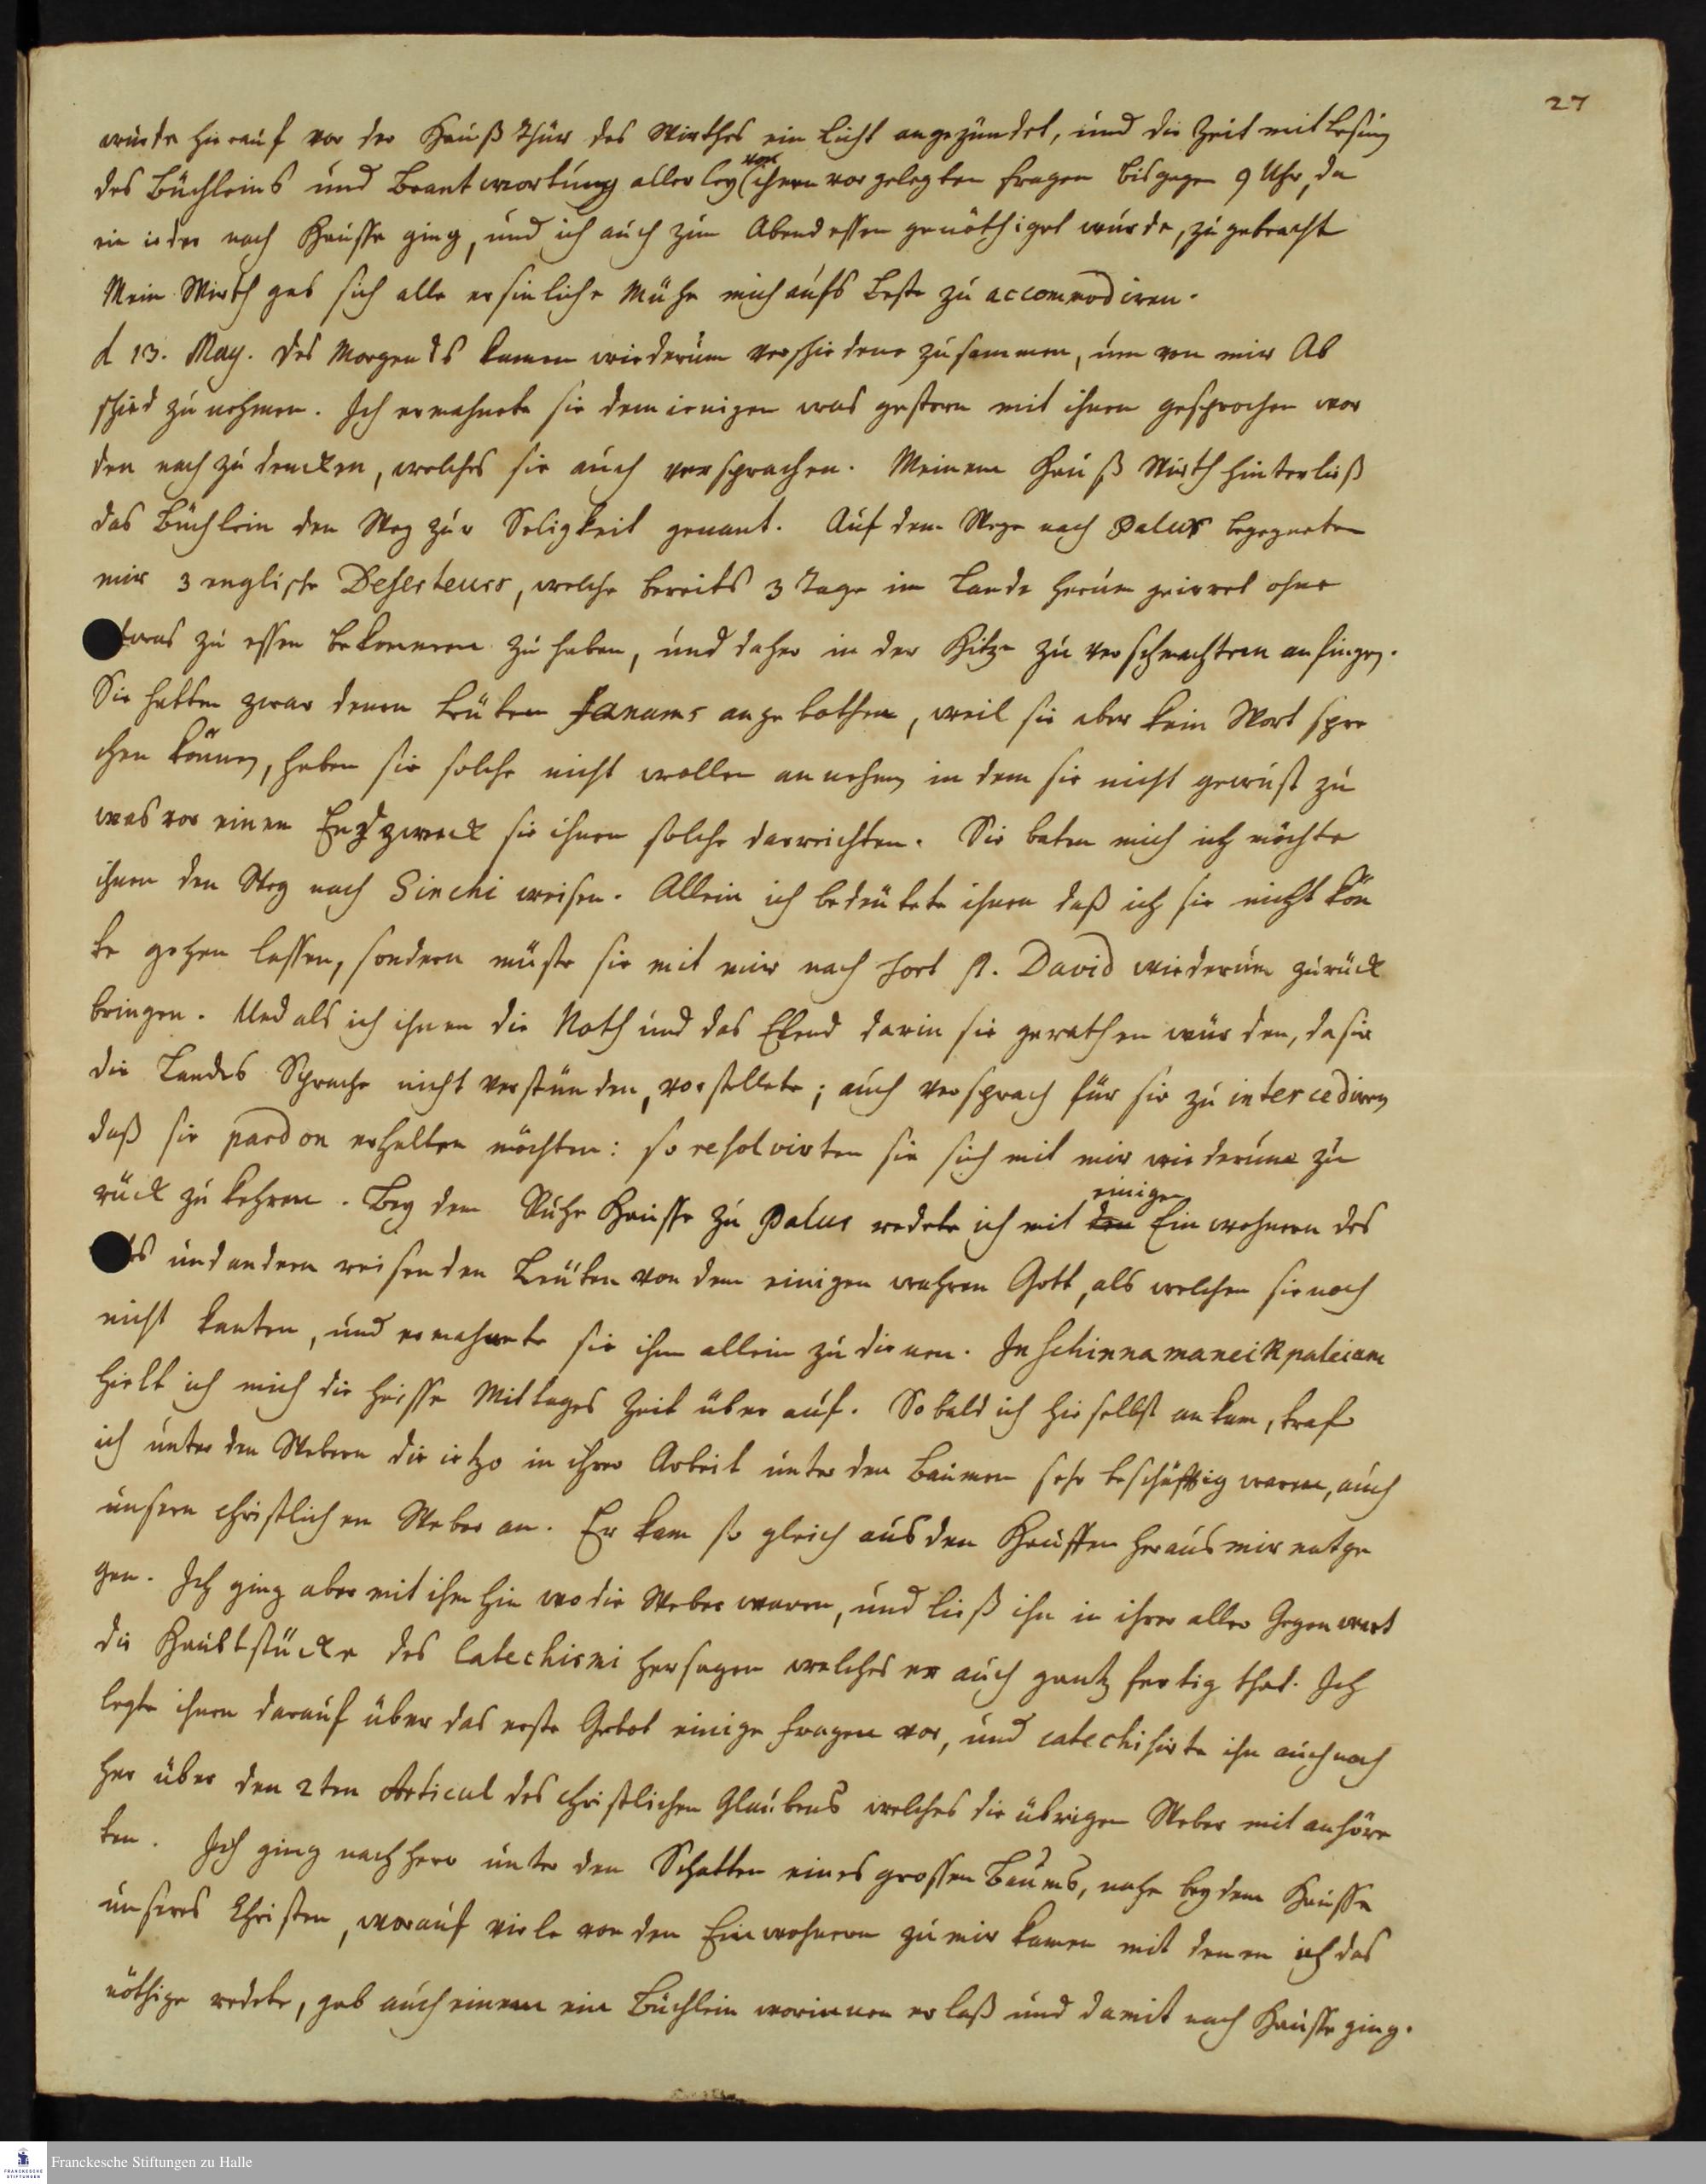 27
wurde hierauf vor der Hauß Thür des Wirthes ein Licht angezündet, und die Zeit mit Lesung
des Büchleins und Beantwortung allerley (von ihnen vorgelegten Fragen bis gegen 9 Uhr, da
ein ieder nach Hausse ging, und ich auch zum Abendessen genöthiget wurde, zugebracht
Mein Wirth gab sich alle ersinliche Mühe mich aufs beste zu accommodiren.
d 13. May. des Morgends kamen wiederum verschiedene zusammen, um von mir Ab
schied zu nehmen. Ich ermahnete sie demienigen was gestern mit ihnen gesprochen wor
den nachzudencken, welches sie auch versprachen. Meinem Hauß Wirth hinterließ
das Büchlein den Weg zur Seligkeit genant. Auf dem Wege nach Palur begegneten
mir 3 englische Deserteurs, welche bereits 3 Tage im Lande herum geirret ohne
etwas zu essen bekommen zu haben, und daher in der Hitze zu verschmachten anfingen.
Sie hatten zwar denen Leüten Fanams angebothen, weil sie aber kein Wort spre
chen können, haben sie solche nicht wollen annehmen in dem sie nicht gewust zu
was vor einen Endzweck sie ihnen solche darreichten. Sie baten mich ich möchte
ihnen den Weg nach Sinchi weisen. Allein ich bedeütete ihnen daß ich sie nicht kön
te gehen lassen, sondern müste sie mit mir nach Fort St. David wiederum zurück
bringen. Und als ich ihnen die Noth und das Elend darin sie gerathen würden, da sie
die Landes Sprache nicht verstünden, vorstellete; auch versprach für sie zu intercediren
daß sie pardon erhalten möchten: so resolvirten sie sich mit mir wiederum zu
rück zu kehren. Bey dem Ruhe Hausse zu Palur redete ich mit den einigen Einwohnern des
und andern reisenden Leüten von dem einigen wahren Gott, als welchen sie noch
nicht kanten, und ermahnete sie ihm allein zu dienen. In Schinnamaneikpaleiam
hielt ich mich die heisse Mittages Zeit über auf. So bald ich hieselbst ankam, traf
ich unter den Webern die ietzo in ihrer Arbeit unter den Bäumen sehr beschäftig waren, auch
unsern christlichen Weber an. Er kam so gleich aus den Haussen heraus mir entge
gen. Ich ging aber mit ihm hin wo die Weber waren, und ließ ihn in ihrer aller Gegenwart
die Haubtstücke des Catechismi hersagen welches er auch gantz fertig that. Ich
legte ihnen darauf über das erste Gebot einige Fragen vor, und catechisirte ihn auch nach
her über den 2ten Articul des christlichen Glaubens welches die übrigen Weber mit anhöre
ten. Ich ging nachhero unter den Schatten eines grossen Baums, nahe bey dem Hausse
unseres Christen, worauf viele von den Einwohnern zu mir kamen mit denen ich das
nöthige redete, gab auch einem ein Büchlein worinnen er laß und damit nach Hausse ging.
FRANCKESCHE STIFTUNGEN
Franckesche Stiftungen zu Halle